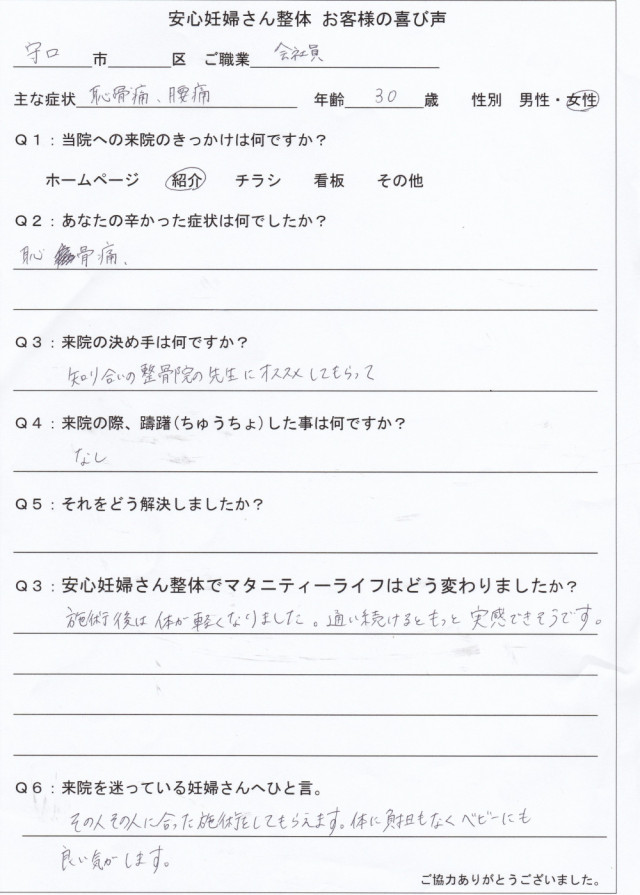 安心妊婦さん整体 お客様の喜び声
守口 市 区 ご職業 会社員
主な症状 恥骨痛、腰痛 年齢 30 歳 性別 男性・女性
Q1：当院への来院のきっかけは何ですか？
ホームページ 紹介 チラシ 看板 その他
Q2：あなたの辛かった症状は何でしたか？
恥骨痛、
Q3：来院の決め手は何ですか？
知り合いの整骨院の先生にオススメしてもらって
Q4：来院の際、躊躇(ちゅうちょ)した事は何ですか？
なし
Q5：それをどう解決しましたか？
Q3：安心妊婦さん整体でマタニティーライフはどう変わりましたか？
施術後は体が軽くなりました。通い続けるともっと実感できそうです。
Q6：来院を迷っている妊婦さんへひと言。
その人その人に合った施術をしてもらえます。体に負担もなくベビーにも
良い気がします。
ご協力ありがとうございました。